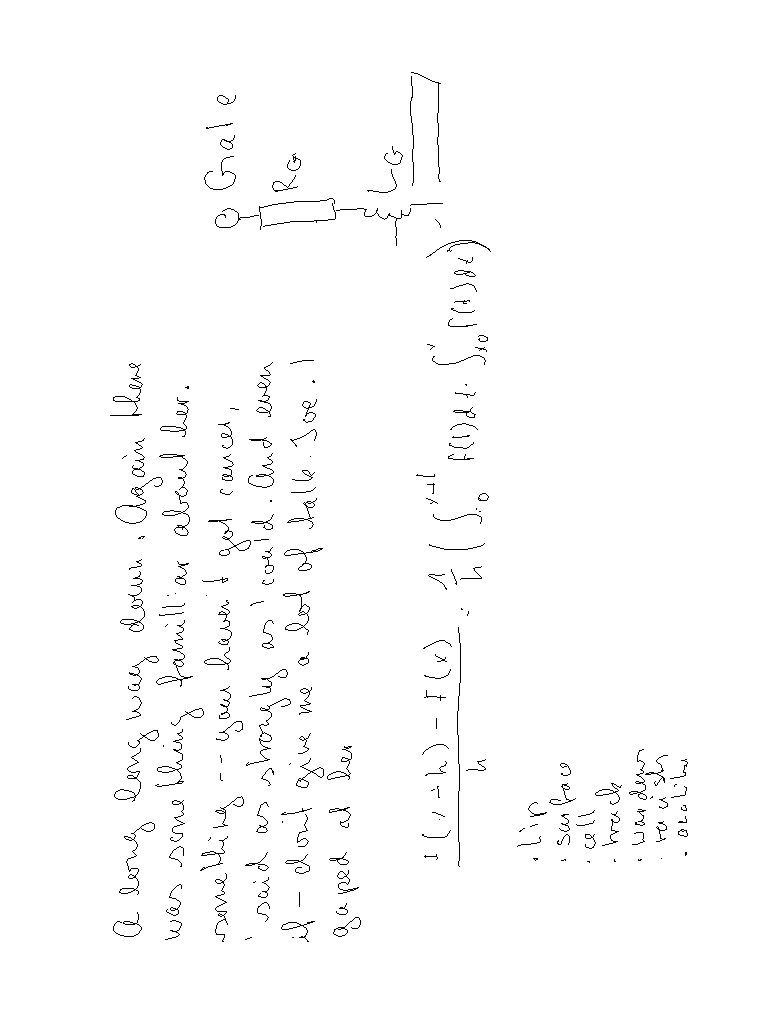 A long long way down. Again there
was something familiar about her.
something -- you haven't got cancer,
said as strongly as I could. And even
if - don't give me a lot of talk. Joe. I
gaped at her
Gate
R_G
L_G
F(x+h) - F(x)
h
= 1/h ( ∫ x0 x+h f(t)dt - ∫ x0 x f(t)dt )
. Lip
. surface
. cell
. track